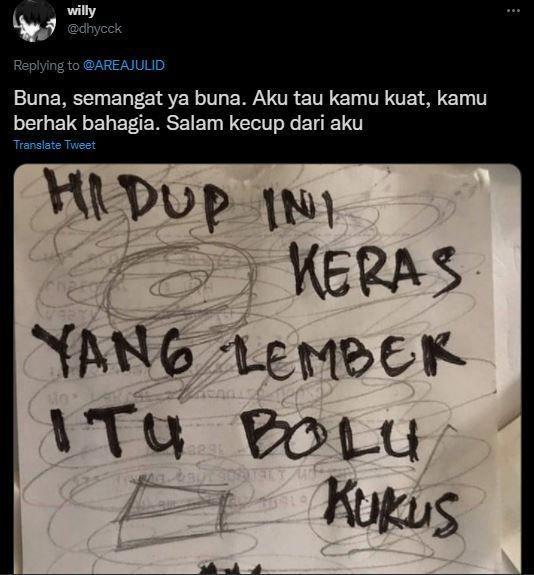 willy
@dhycck
Replying to @AREAJULID
Buna, semangat ya buna. Aku tau kamu kuat, kamu
berhak bahagia. Salam kecup dari aku
Translate Tweet
HIDUP INI
KERAS
YANG LEMBEK
ITU BOLU
KUKUS